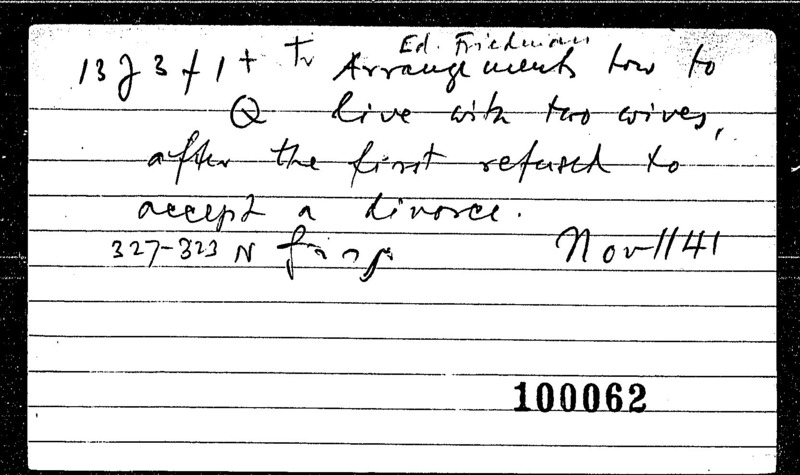 Ed. Friedman
13 J 3 f 1 + Tr Arrangements how to
Q live with two wives,
after the first refused to
accept a divorce.
327-323 N Nov 1141
100062